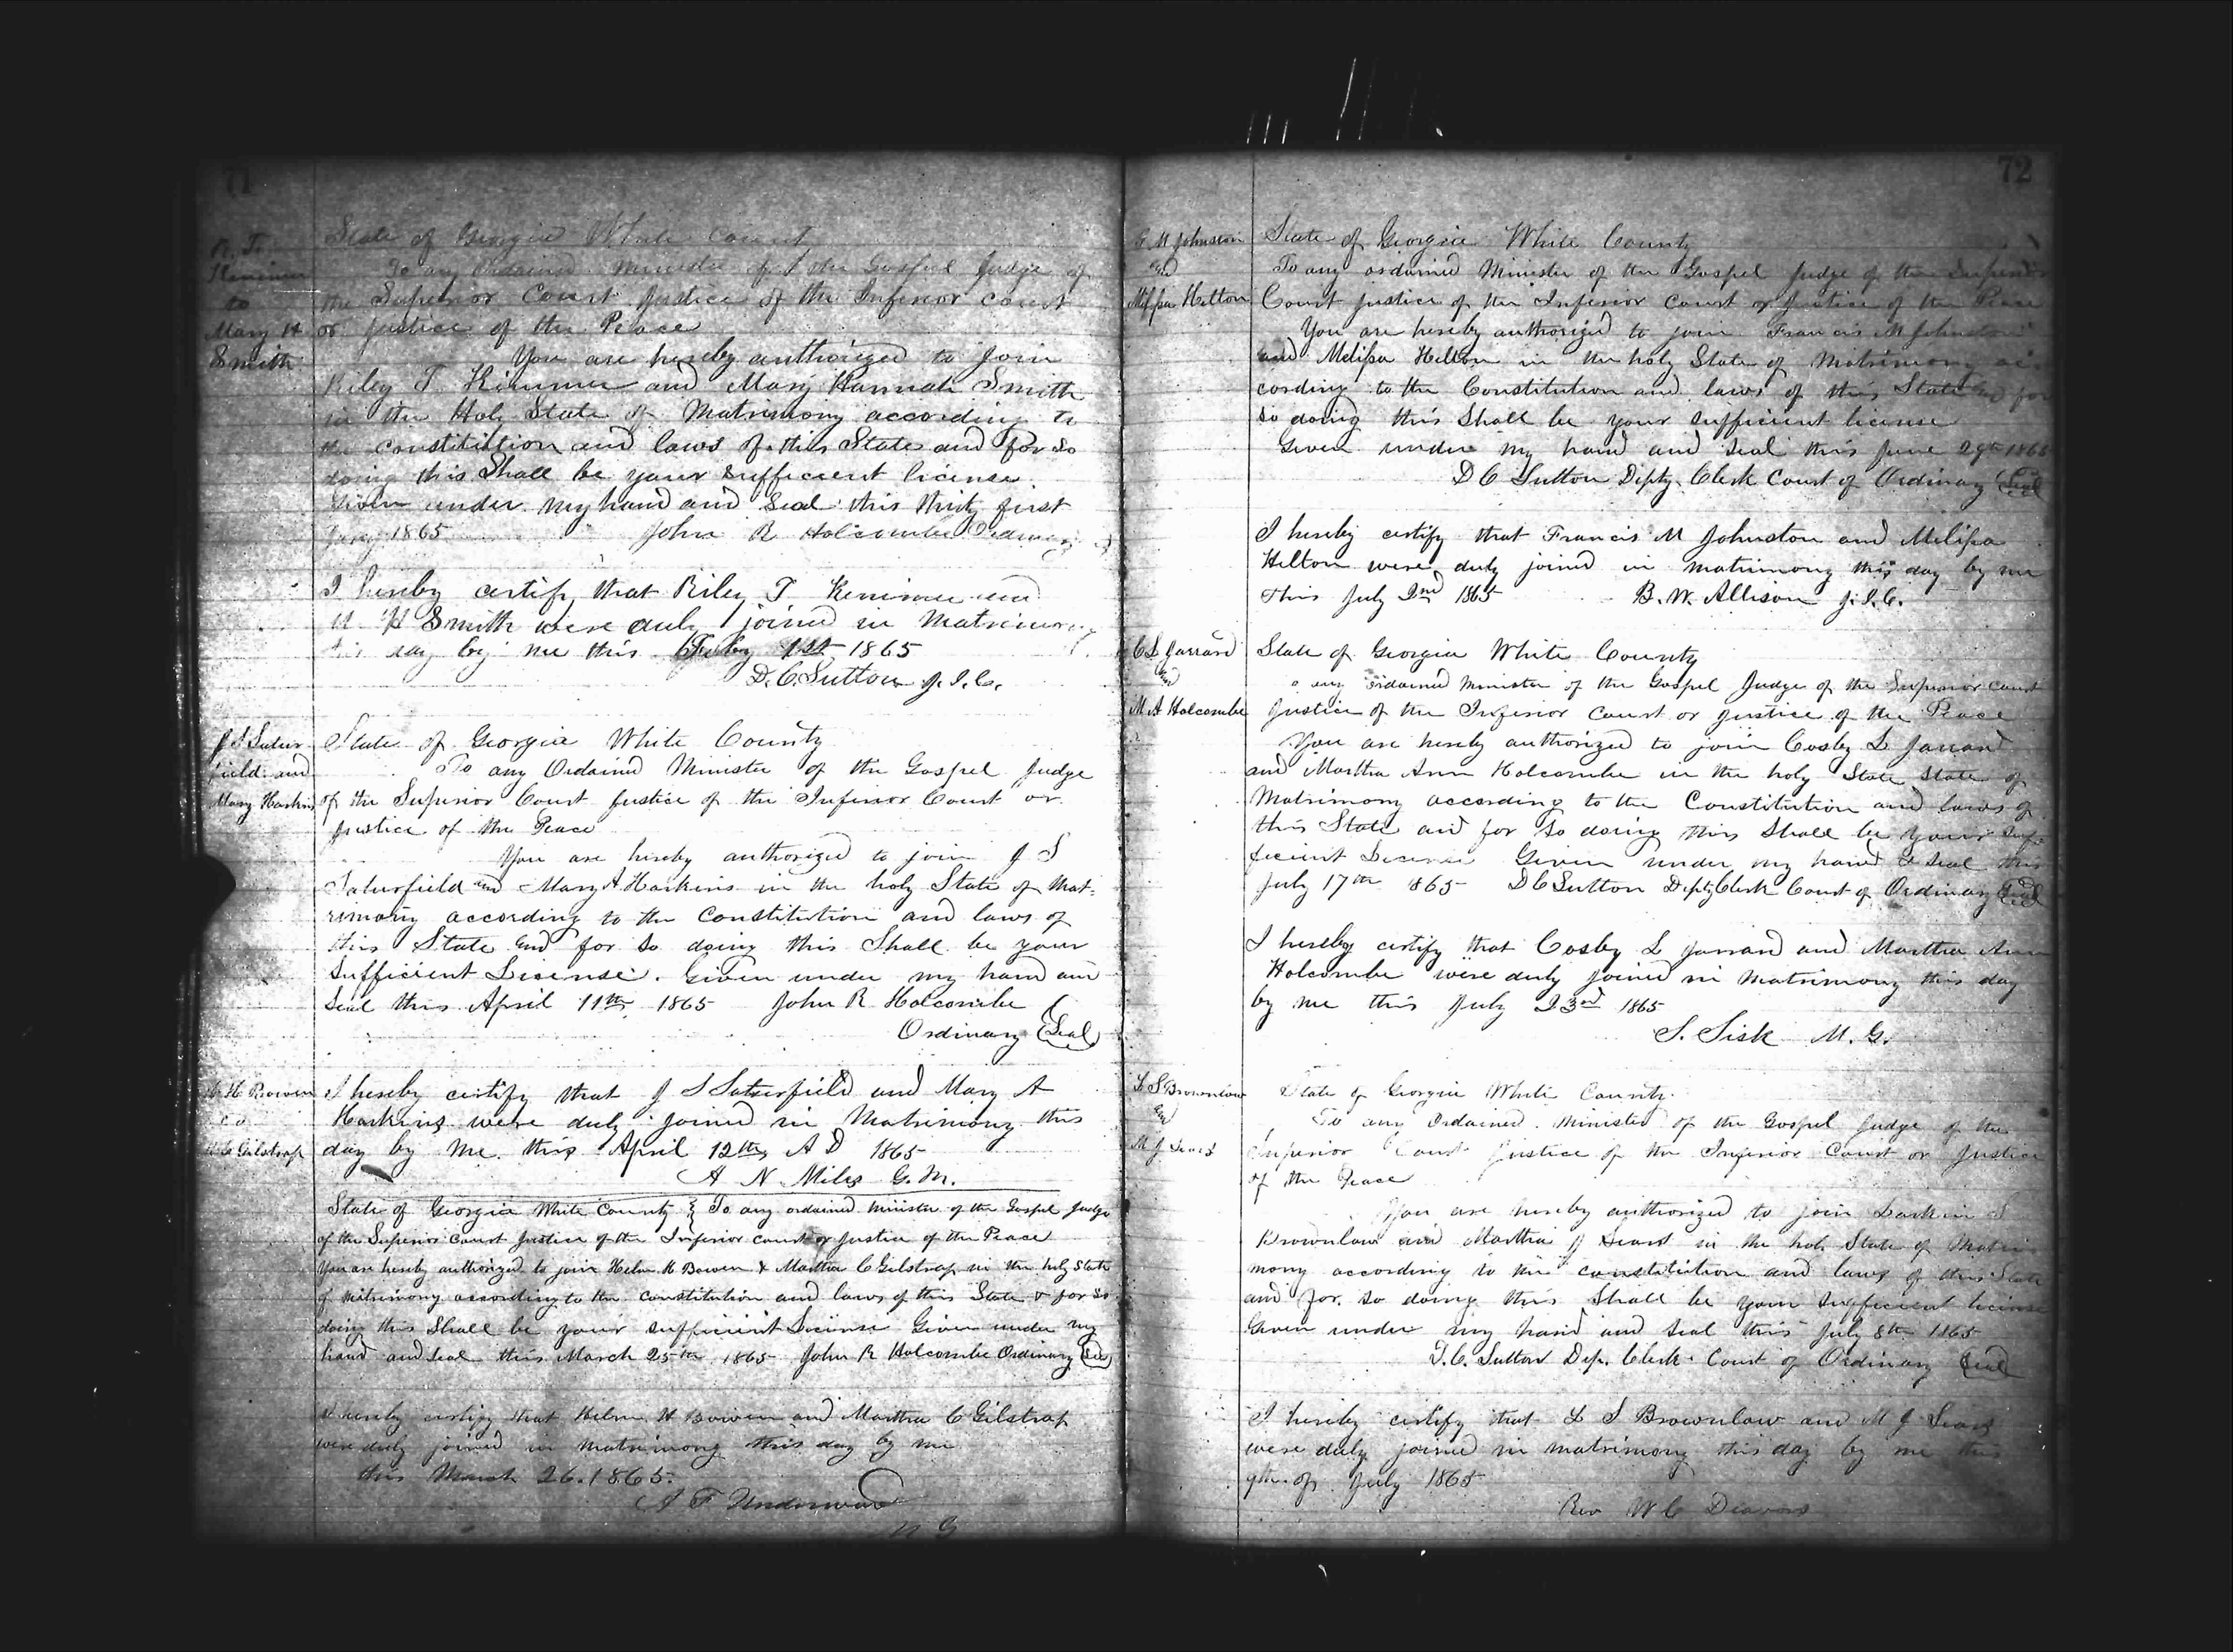 71
R. T.
Kenimer
to
Mary H
Smith
State of Georgia White County
To any Ordained Minister of the Gospel Judge of
the Superior Court Justice of the Inferior court
or justice of the Peace
You are hereby authorized to join
Riley T Kenimer and Mary Hannah Smith
in the Holy State of Matrimony according to
the constitution and laws of this State and for so
doing this Shall be your sufficient license
Given under my hand and Seal this thirty first
Jany 1865 John R Holcombe Ordinary
I hereby certify that Riley T Kenimer and
M H Smith were duly joined in Matrimony
this day by me this Feby 1st 1865
D. C. Sutton J. I. C.
J S Satur
field and
Mary Haskins
State of Georgia White County
To any Ordained Minister of the Gospel Judge
of the Superior Court Justice of the Inferior Court or
justice of the Peace
You are hereby authorized to join J S
Saturfield and Mary A Haskins in the holy State of Mat=
rimony according to the Constitution and laws of
this State and for so doing this Shall be your
Sufficient License. Given under my hand and
Seal this April 11th 1865 John R Holcombe
Ordinary (Seal)
H H Bowen
M C Gilstrap
I hereby certify that J S Saturfield and Mary A
Haskins were duly joined in Matrimony this
day by me this April 12th A D 1865
A N Miles G. M.
State of Georgia White County } To any ordained minister of the Gospel Judge
of the Superior Court Justice of the Inferior court or Justice of the Peace
You are hereby authorized to join Helm H Bowen & Martha C Gilstrap in the holy State
of matrimony according to the constitution and laws of this State & for so
doing this Shall be your sufficient License Given under my
hand and Seal this March 25th 1865 John R Holcombe Ordinary (Seal)
I hereby certify that Helm H Bowen and Martha C Gilstrap
were duly joined in matrimony this day by me
this March 26. 1865.
A F Underwood
M G
72
F M Johnston
and
Melissa Hilton
State of Georgia White County
To any ordained Minister of the Gospel Judge of the Superior
Court Justice of the Inferior Court or Justice of the Peace
You are hereby authorized to join Francis M Johnston
and Melissa Hilton in the holy State of Matrimony ac-
cording to the Constitution and laws of this State and for
so doing this Shall be your sufficient license
Given under my hand and seal this June 29th 1865
D C Sutton Depty. Clerk Court of Ordinary (Seal)
I hereby certify that Francis M Johnston and Melissa
Hilton were duly joined in matrimony this day by me
This July 2nd 1865 B. W. Allison J. I. C.
C L Jarrard
and
M A Holcombe
State of Georgia White County
any ordained Minister of the Gospel Judge of the Superior Court
Justice of the Inferior Court or justice of the Peace
You are hereby authorized to join Cosby L Jarrard
and Martha Ann Holcombe in the holy State State of
Matrimony according to the Constitution and laws of
this State and for so doing this Shall be your suf-
ficient License Given under my hand & seal this
July 17th 1865 D C Sutton Depty Clerk Court of Ordinary (Seal)
I hereby certify that Cosby L Jarrard and Martha Ann
Holcombe were duly joined in Matrimony this day
by me this July 23rd 1865
S. Sisk M. G.
L S Brownlow
and
M J Sears
State of Georgia White County.
To any Ordained Minister of the Gospel Judge of the
Superior Court Justice of the Inferior Court or Justice
of the Peace
You are hereby authorized to join Larkin S
Brownlow and Martha J Sears in the holy State of Matri
mony according to the constitution and laws of this State
and for so doing this Shall be your sufficient license
Given under my hand and seal this July 8th 1865
D. C. Sutton Dep. Clerk Court of Ordinary (Seal)
I hereby certify that L S Brownlow and M J Sears
were duly joined in matrimony this day by me this
9th of July 1865
Rev W C Deavors